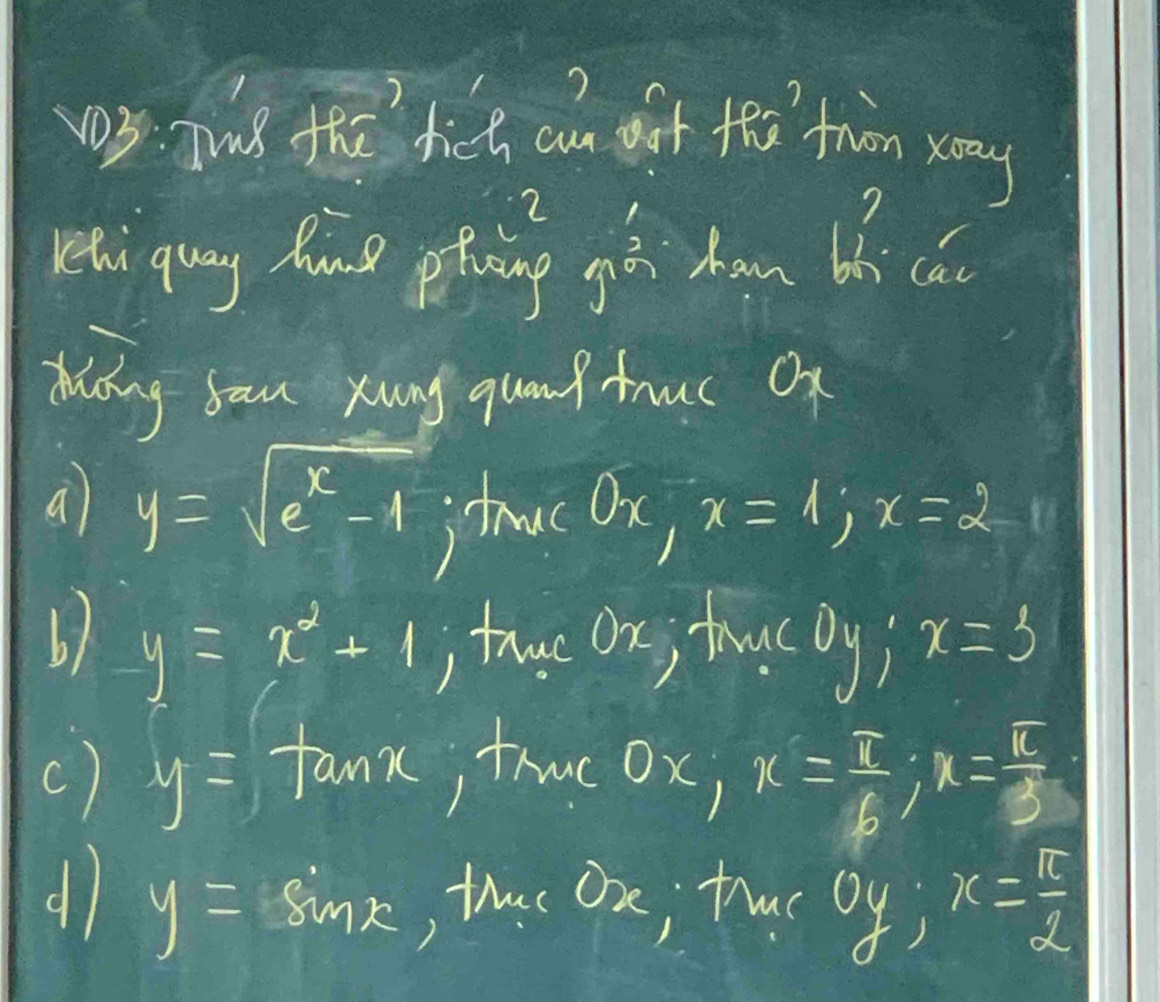 VD3: Tính thể tích của vật thể tròn xoay
khi quay hình phẳng giới hạn bởi các
đường sau xung quanh trục Ox
a) y = √(eˣ - 1) ; trục Ox, x = 1; x = 2
b) y = x² + 1; trục Ox; trục Oy; x = 3
c) y = tanx, trục Ox, x = π/6; x = π/3
d) y = sinx, trục Ox; trục Oy; x = π/2